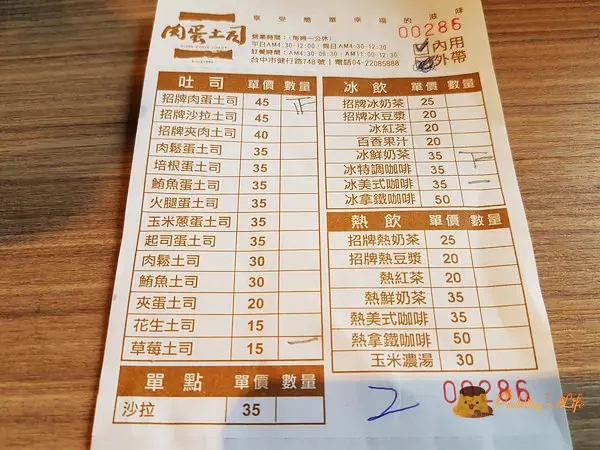 享受簡單幸福的滋味
肉蛋土司
00286
營業時間：(每週一公休)
平日AM4:30-12:00，假日AM4:30-12:30
訂餐時間：AM4:30-06:30 AM11:00-12:30
台中市健行路748號｜電話04-22085888
內用
外帶
吐司 單價 數量
招牌肉蛋土司 45
招牌沙拉土司 45
招牌夾肉土司 40
肉鬆蛋土司 35
培根蛋土司 35
鮪魚蛋土司 35
火腿蛋土司 35
玉米蔥蛋土司 35
起司蛋土司 35
肉鬆土司 30
鮪魚土司 30
夾蛋土司 20
花生土司 15
草莓土司 15 一
單點 單價 數量
沙拉 35
冰飲 單價 數量
招牌冰奶茶 25
招牌冰豆漿 20
冰紅茶 20
百香果汁 20
冰鮮奶茶 35
冰特調咖啡 35
冰美式咖啡 35 一
冰拿鐵咖啡 50
熱飲 單價 數量
招牌熱奶茶 25
招牌熱豆漿 20
熱紅茶 20
熱鮮奶茶 35
熱美式咖啡 35
熱拿鐵咖啡 50
玉米濃湯 30
2
00286